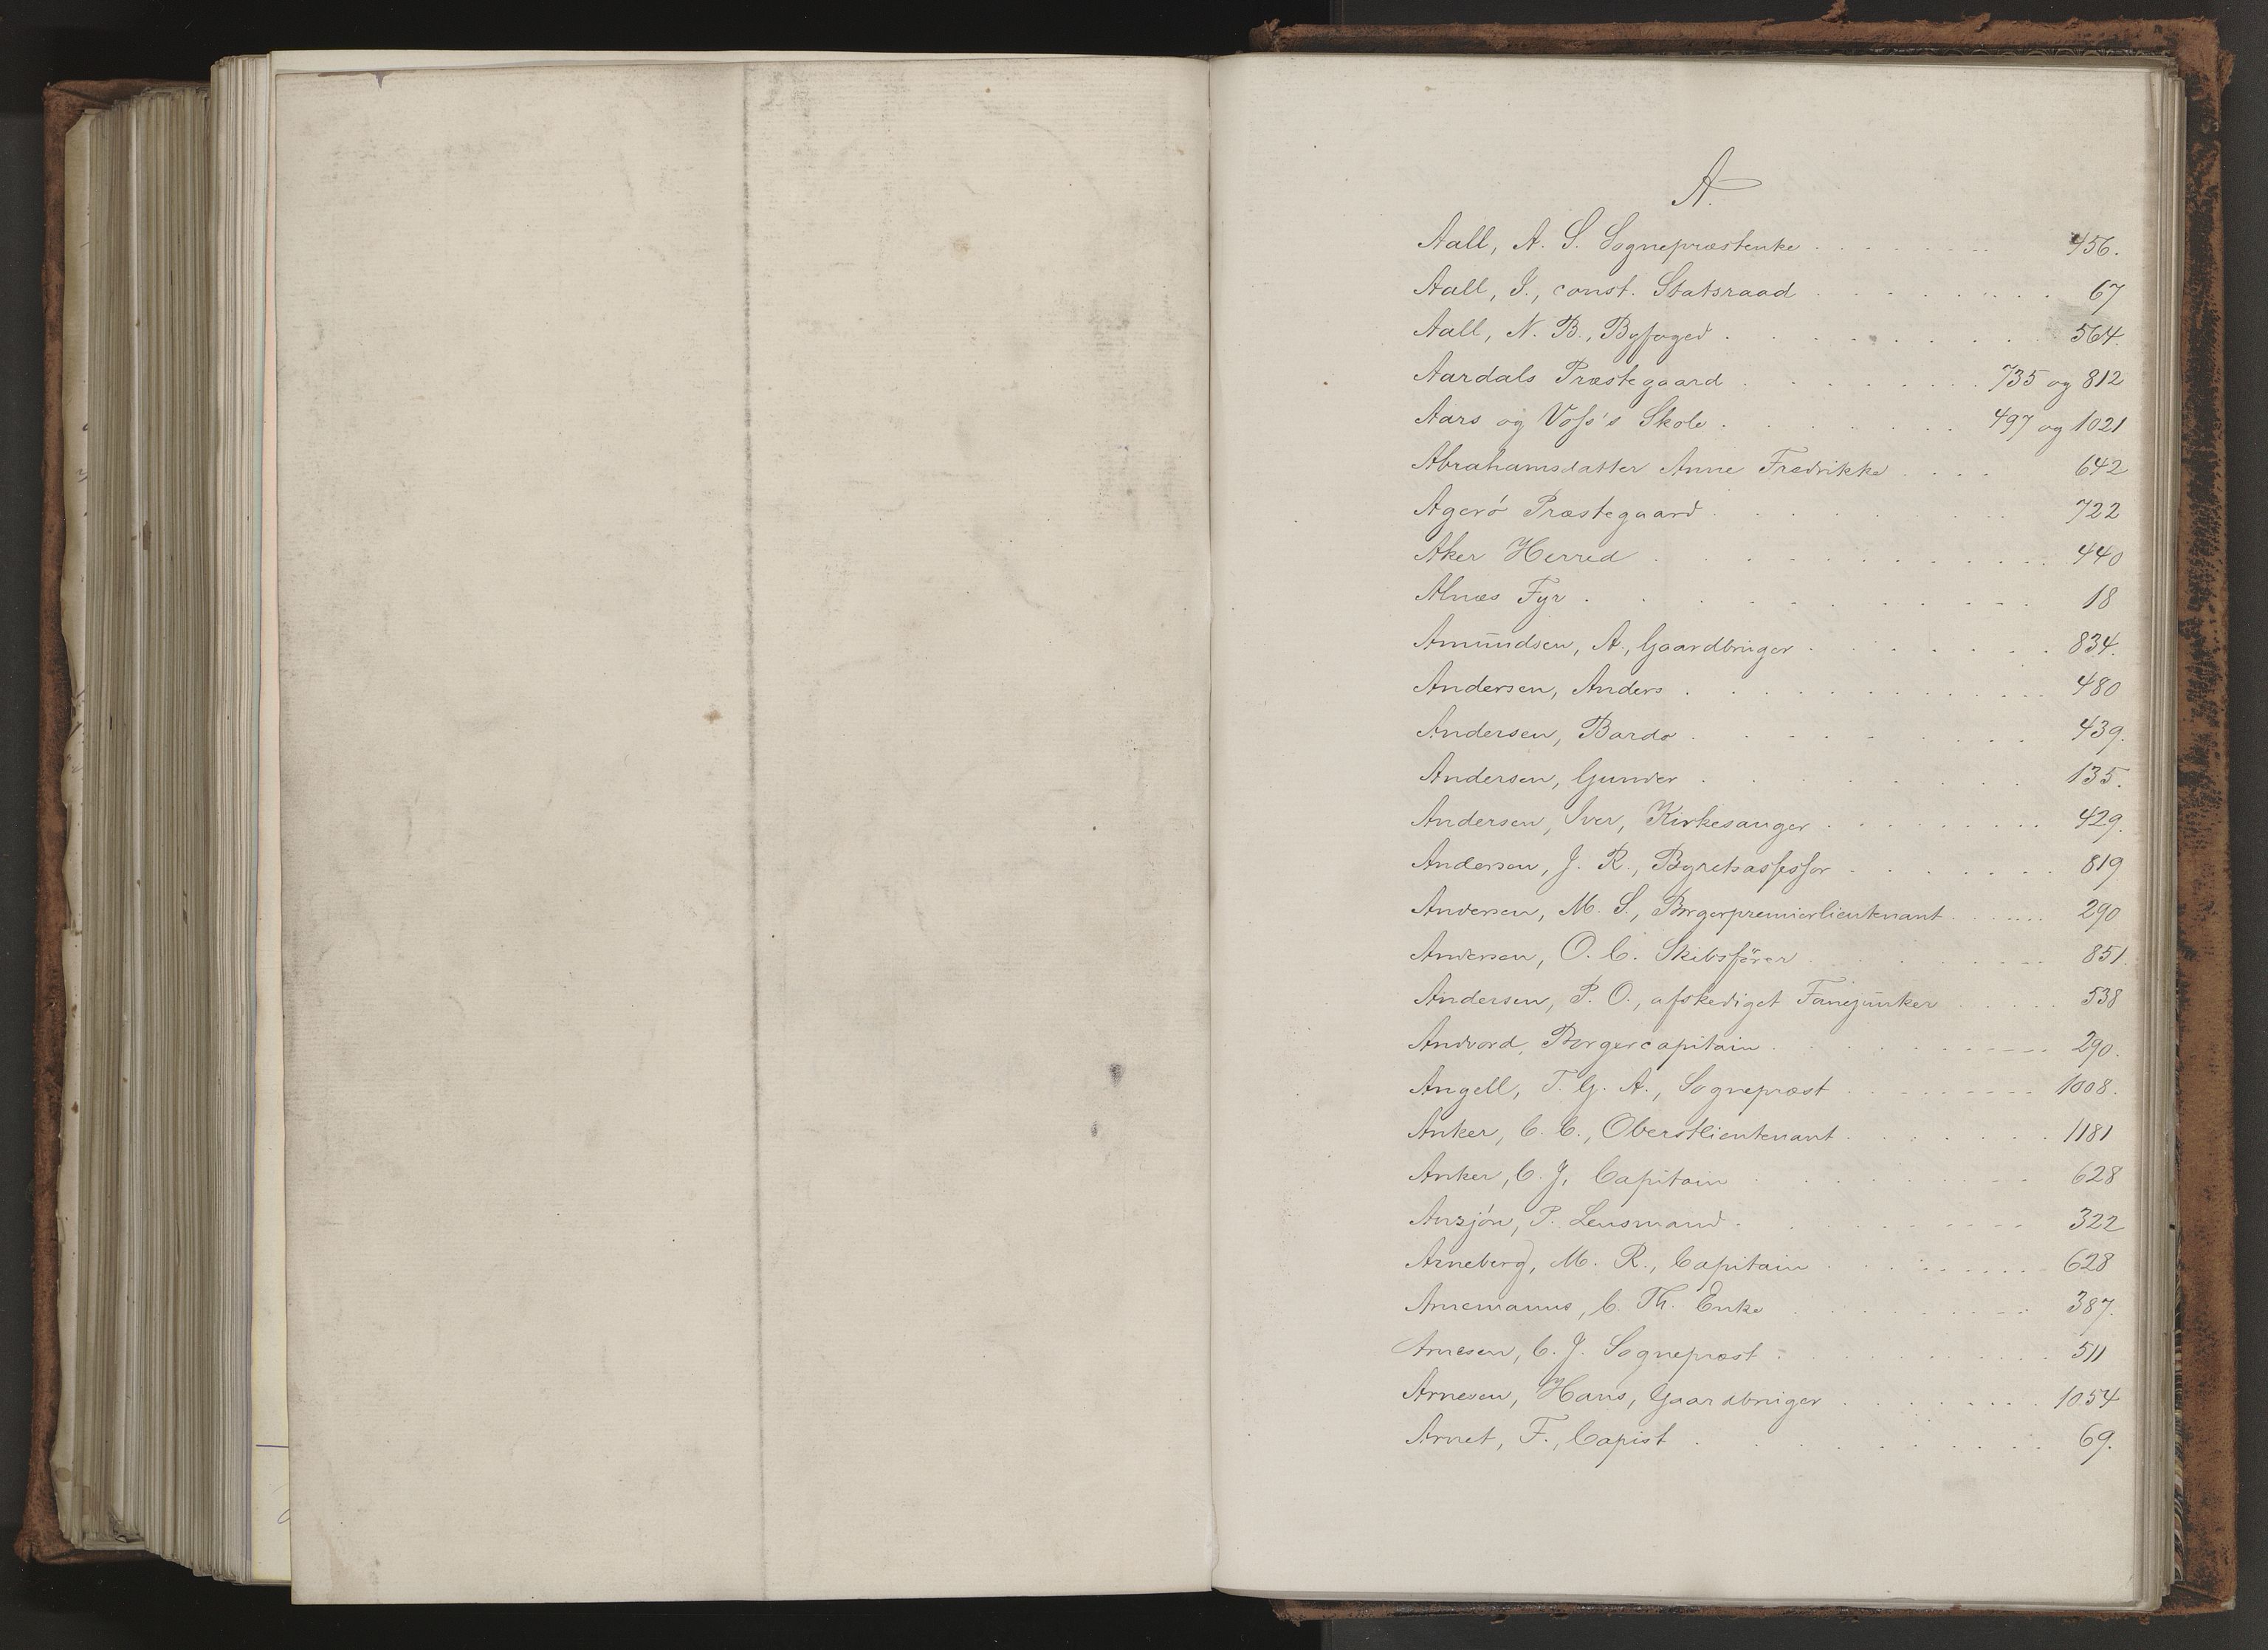 A.
Aall, A. S. Sognepræstenke . . . . . . . . 456.
Aall, J., const. Statsraad . . . . . . . . 67
Aall, N. B., Byfoged . . . . . . . . 564.
Aardals Præstegaard . . . . . . . . 735 og 812
Aars og Voss's Skole . . . . . . . . 497 og 1021
Abrahamsdatter Anne Fredrikke . . . . 642
Agerö Præstegaard . . . . . . . . 722
Aker Herred . . . . . . . . 440
Alnæs Fyr . . . . . . . . 18
Amundsen, A., Gaardbruger . . . . . . . . 834.
Andersen, Anders . . . . . . . . 480
Andersen, Bardo . . . . . . . . 439.
Andersen, Gunder . . . . . . . . 135.
Andersen, Iver, Kirkesanger . . . . . . . . 429.
Andersen, J. R., Byretsassessor . . . . . . . . 819
Andersen, M. S., Borgerpremierlieutenant . . . . . . 290
Andersen, O. C. Skibsfører . . . . . . . . 851.
Andersen, P. O., afskediget Fanejunker . . . . . 538
Andvord, Borgercapitain . . . . . . . . 290.
Angell, T. G. A., Sognepræst . . . . . . . . 1008.
Anker, C. C., Oberstlieutenant . . . . . . . . 1181
Anker, C. J, Capitain . . . . . . . . 628
Ansjön, P. Lensmand . . . . . . . . 322
Arneberg, M. R., Capitain . . . . . . . . 628
Arnemanns, C. Th. Enke . . . . . . . . 387.
Arnesen, C. J. Sognepræst . . . . . . . . 511
Arnesen, Hans, Gaardbruger . . . . . . . . 1054
Arnet, F., Copist . . . . . . . . 69.